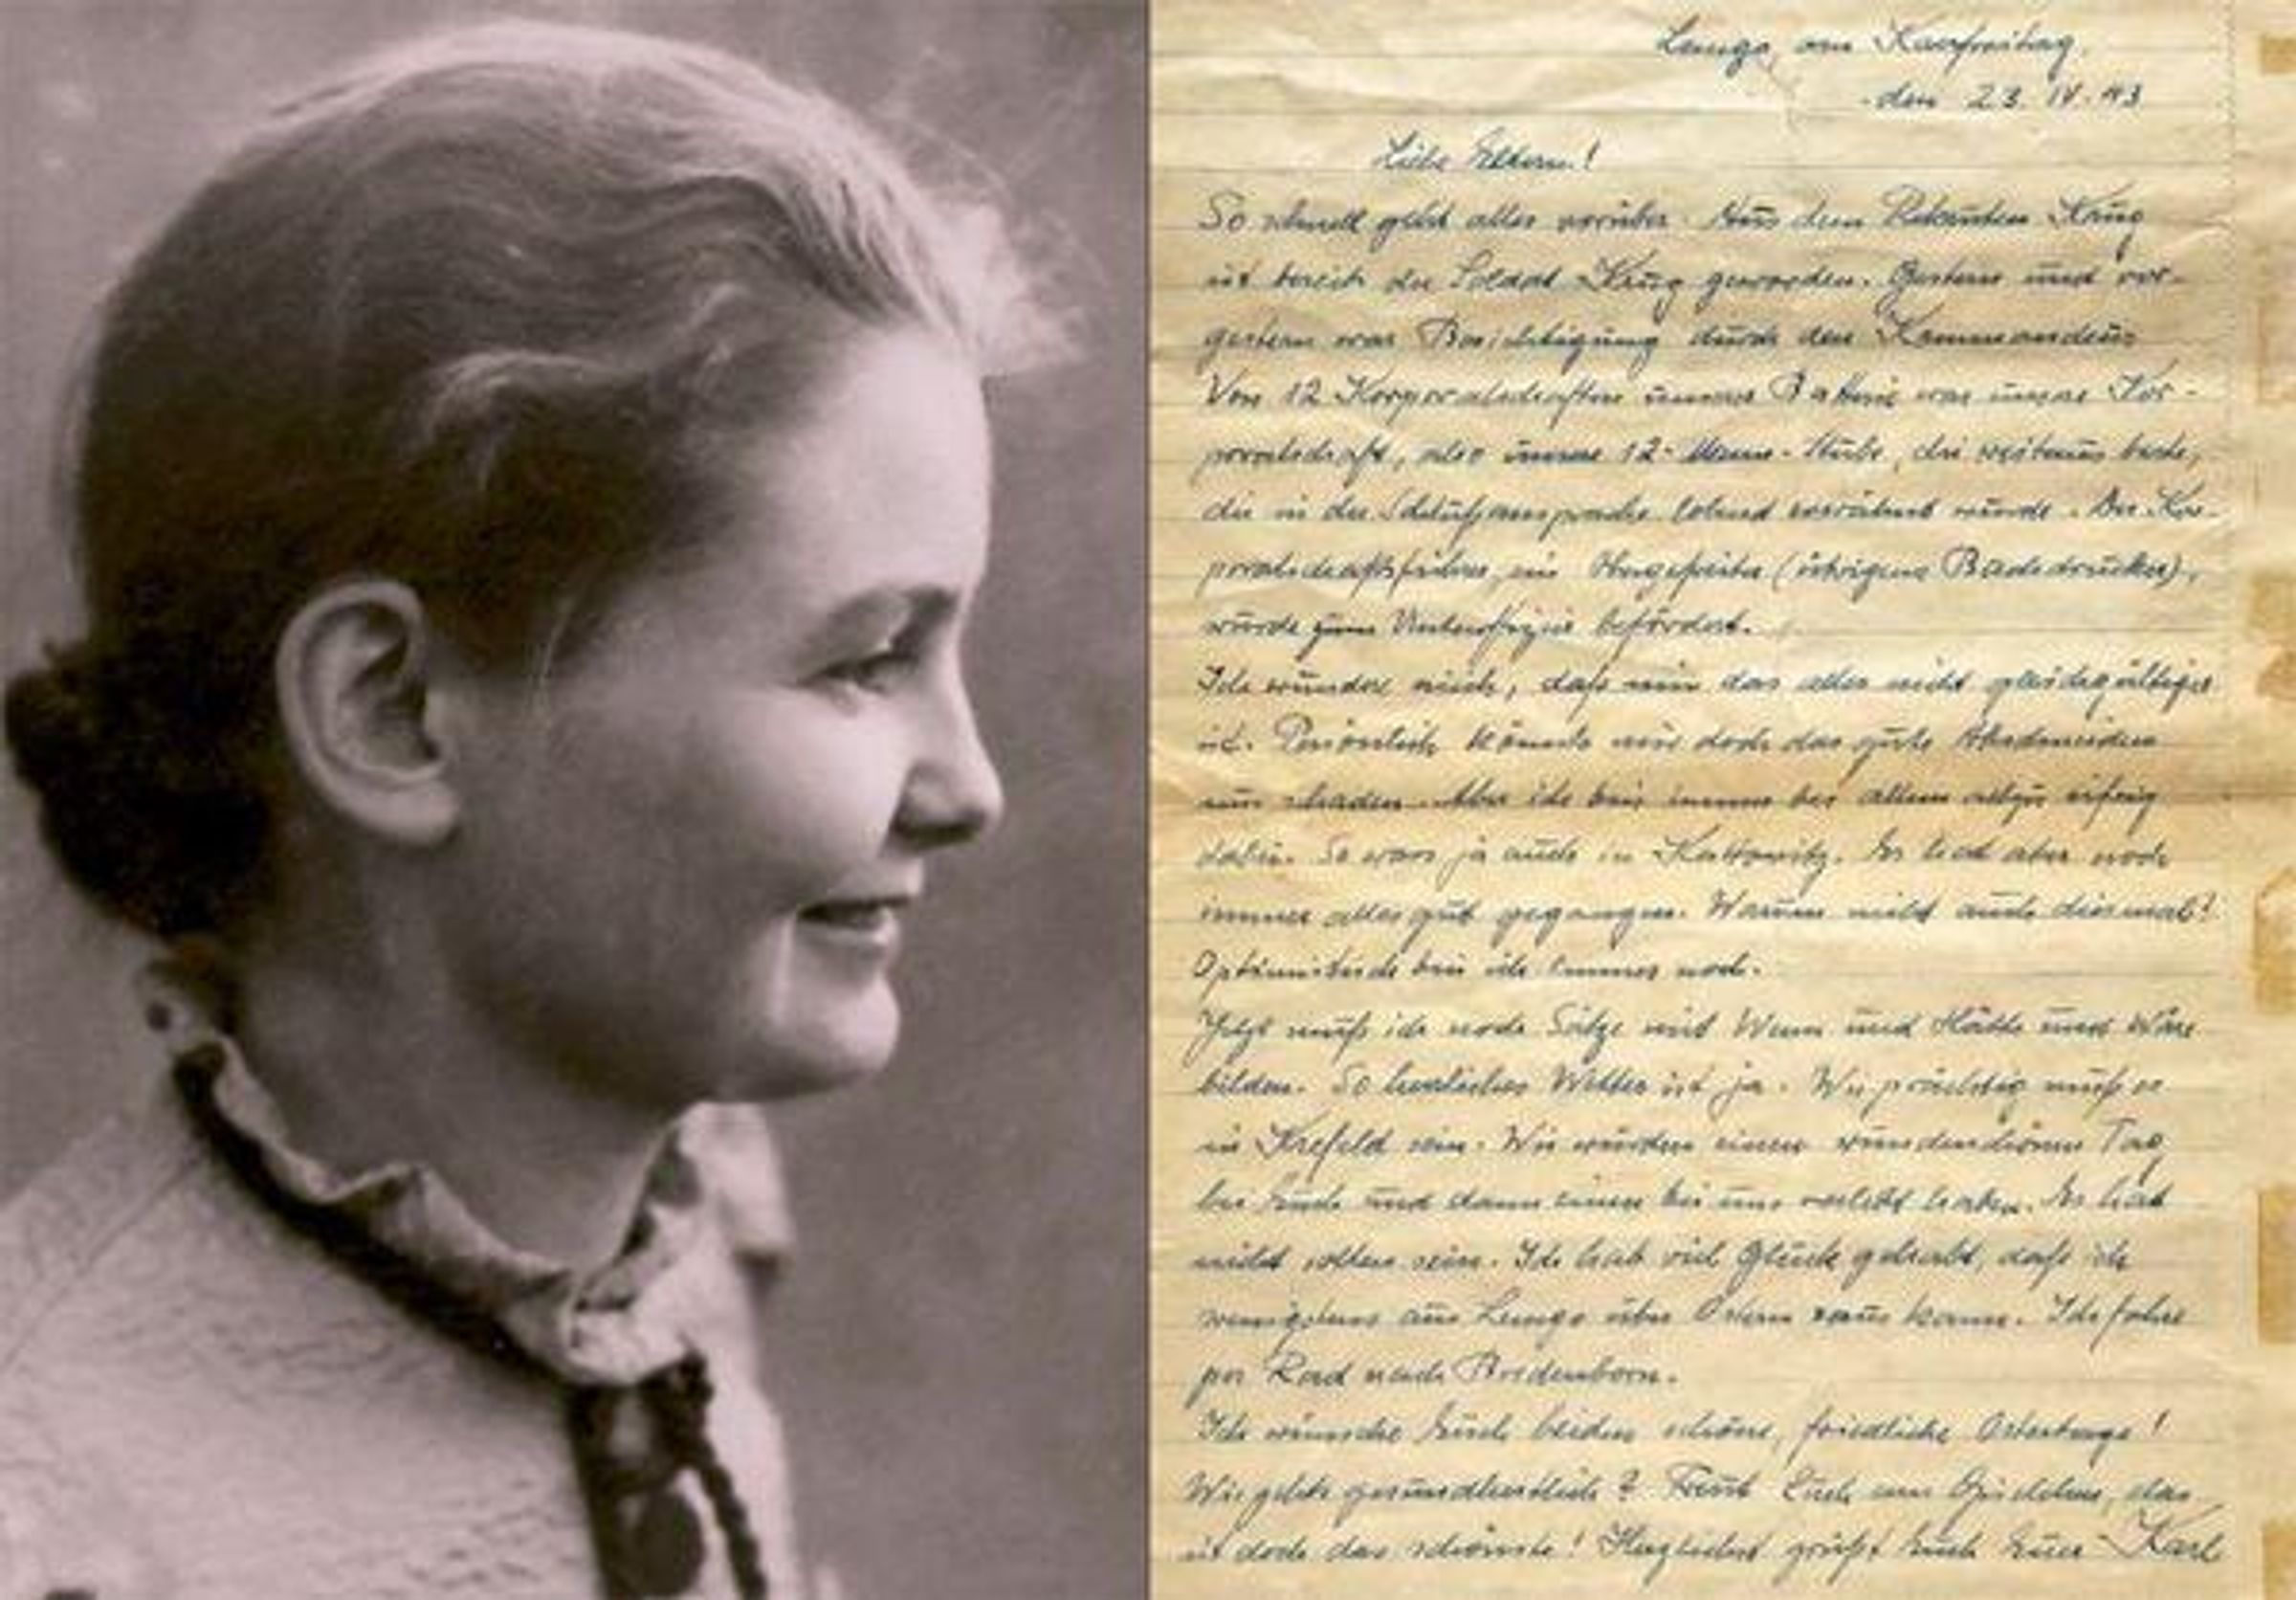 Lemgo, am Karfreitag,
den 23. IV. 43
Liebe Eltern!
So schnell geht alles vorüber. Aus dem Rekruten Krug
ist bereits der Soldat Krug geworden. Gestern und vor-
gestern war Besichtigung durch den Kommandeur
Von 12 Korporalschaften unserer Batterie war unsere Kor-
poralschaft, also unsere 12-Mann-Stube, die weitaus beste,
die in der Schlußansprache lobend erwähnt wurde. Der Kor-
poralschaftsführer, ein Obergefreiter (übrigens Buchdrucker),
wurde zum Unteroffizier befördert.
Ich wundre mich, daß mir das alles nicht gleichgültiger
ist. Persönlich könnte mir doch das gute Abschneiden
nur schaden. Aber ich bin immer bei allem allzu eifrig
dabei. So wars ja auch in Kattowitz. Es hat aber noch
immer alles gut gegangen. Warum nicht auch diesmal!
Optimistisch bin ich immer noch.
Jetzt muß ich noch Sätze mit Wenn und Hätte und Wäre
bilden. So herrliches Wetter ist ja. Wie prächtig muß es
in Krefeld sein. Wir würden einen wunderschönen Tag
bei Euch und dann einen bei uns verlebt haben. Es hat
nicht sollen sein. Ich hab viel Glück gehabt, daß ich
wenigstens aus Lemgo über Ostern raus kann. Ich fahre
per Rad nach Bredenborn.
Ich wünsche Euch beiden schöne, friedliche Ostertage!
Wie gehts gesundheitlich? Freut Euch am Gärtchen, das
ist doch das schönste! Herzlichst grüßt Euch Euer Karl